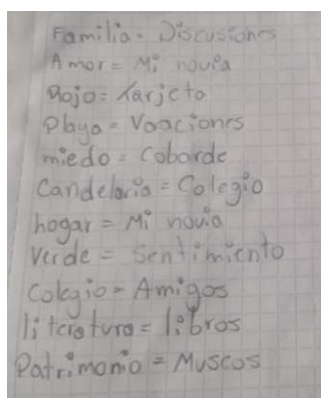 Familia = Discusiones
Amor = Mi novia
Rojo = Tarjeta
Playa = Vacaciones
miedo = Cobarde
Candelaria = Colegio
hogar = Mi novia
Verde = Sentimiento
Colegio = Amigos
literatura = libros
Patrimonio = Museos